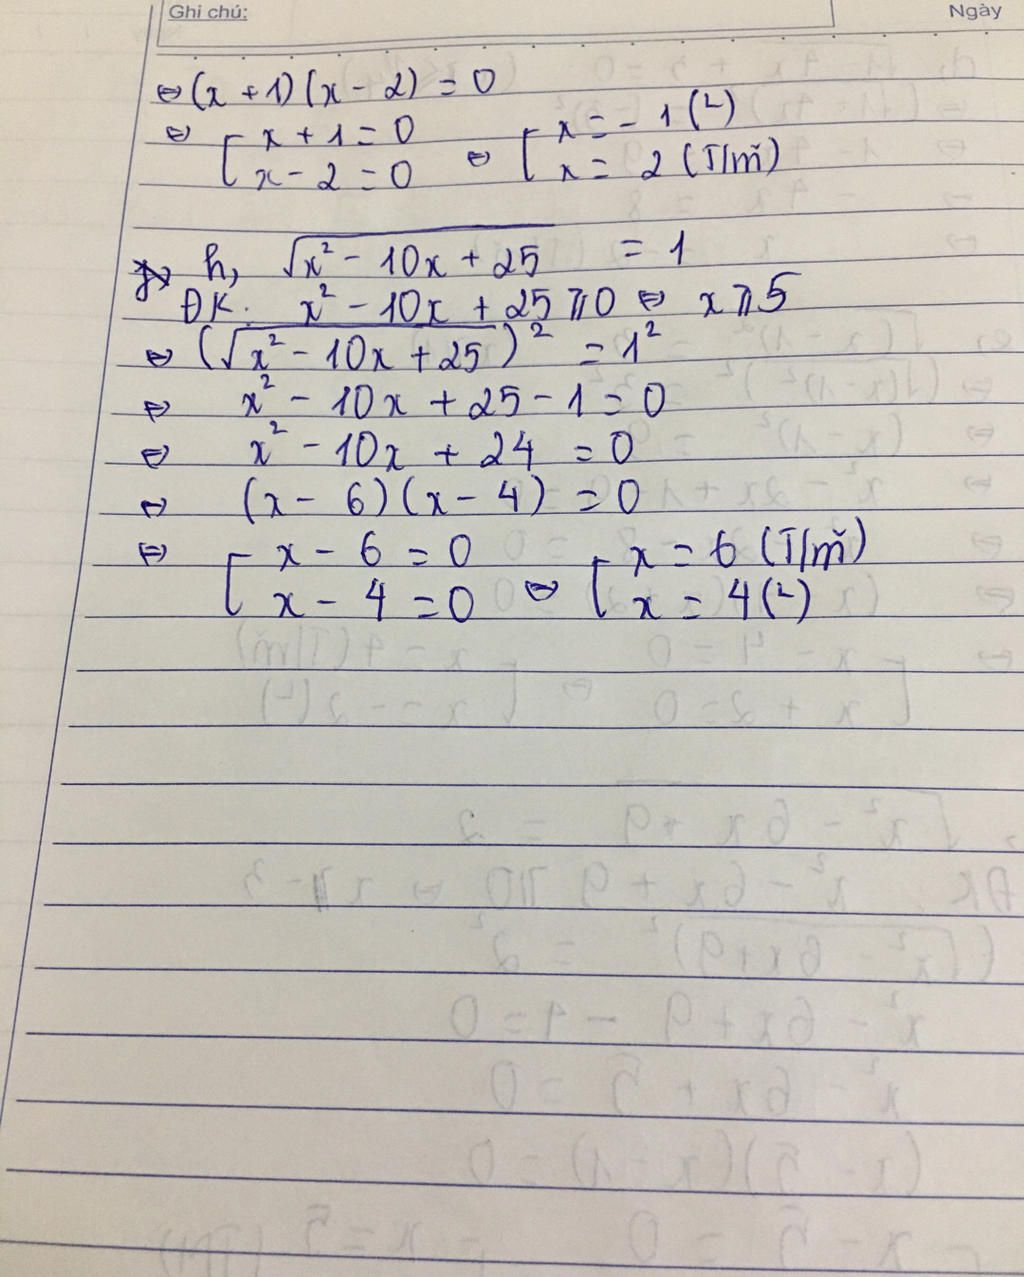 Ghi chú:
Ngày
⇔ (x + 1)(x - 2) = 0
⇔ [ x + 1 = 0 ⇔ [ x = - 1 (L)
x - 2 = 0 x = 2 (T/m)
h, √x² - 10x + 25 = 1
ĐK. x² - 10x + 25 ⩾ 0 ⇔ x ⩾ 5
⇔ (√x² - 10x + 25)² = 1²
⇔ x² - 10x + 25 - 1 = 0
⇔ x² - 10x + 24 = 0
⇔ (x - 6)(x - 4) = 0
⇔ [ x - 6 = 0 ⇔ [ x = 6 (T/m)
x - 4 = 0 x = 4 (L)